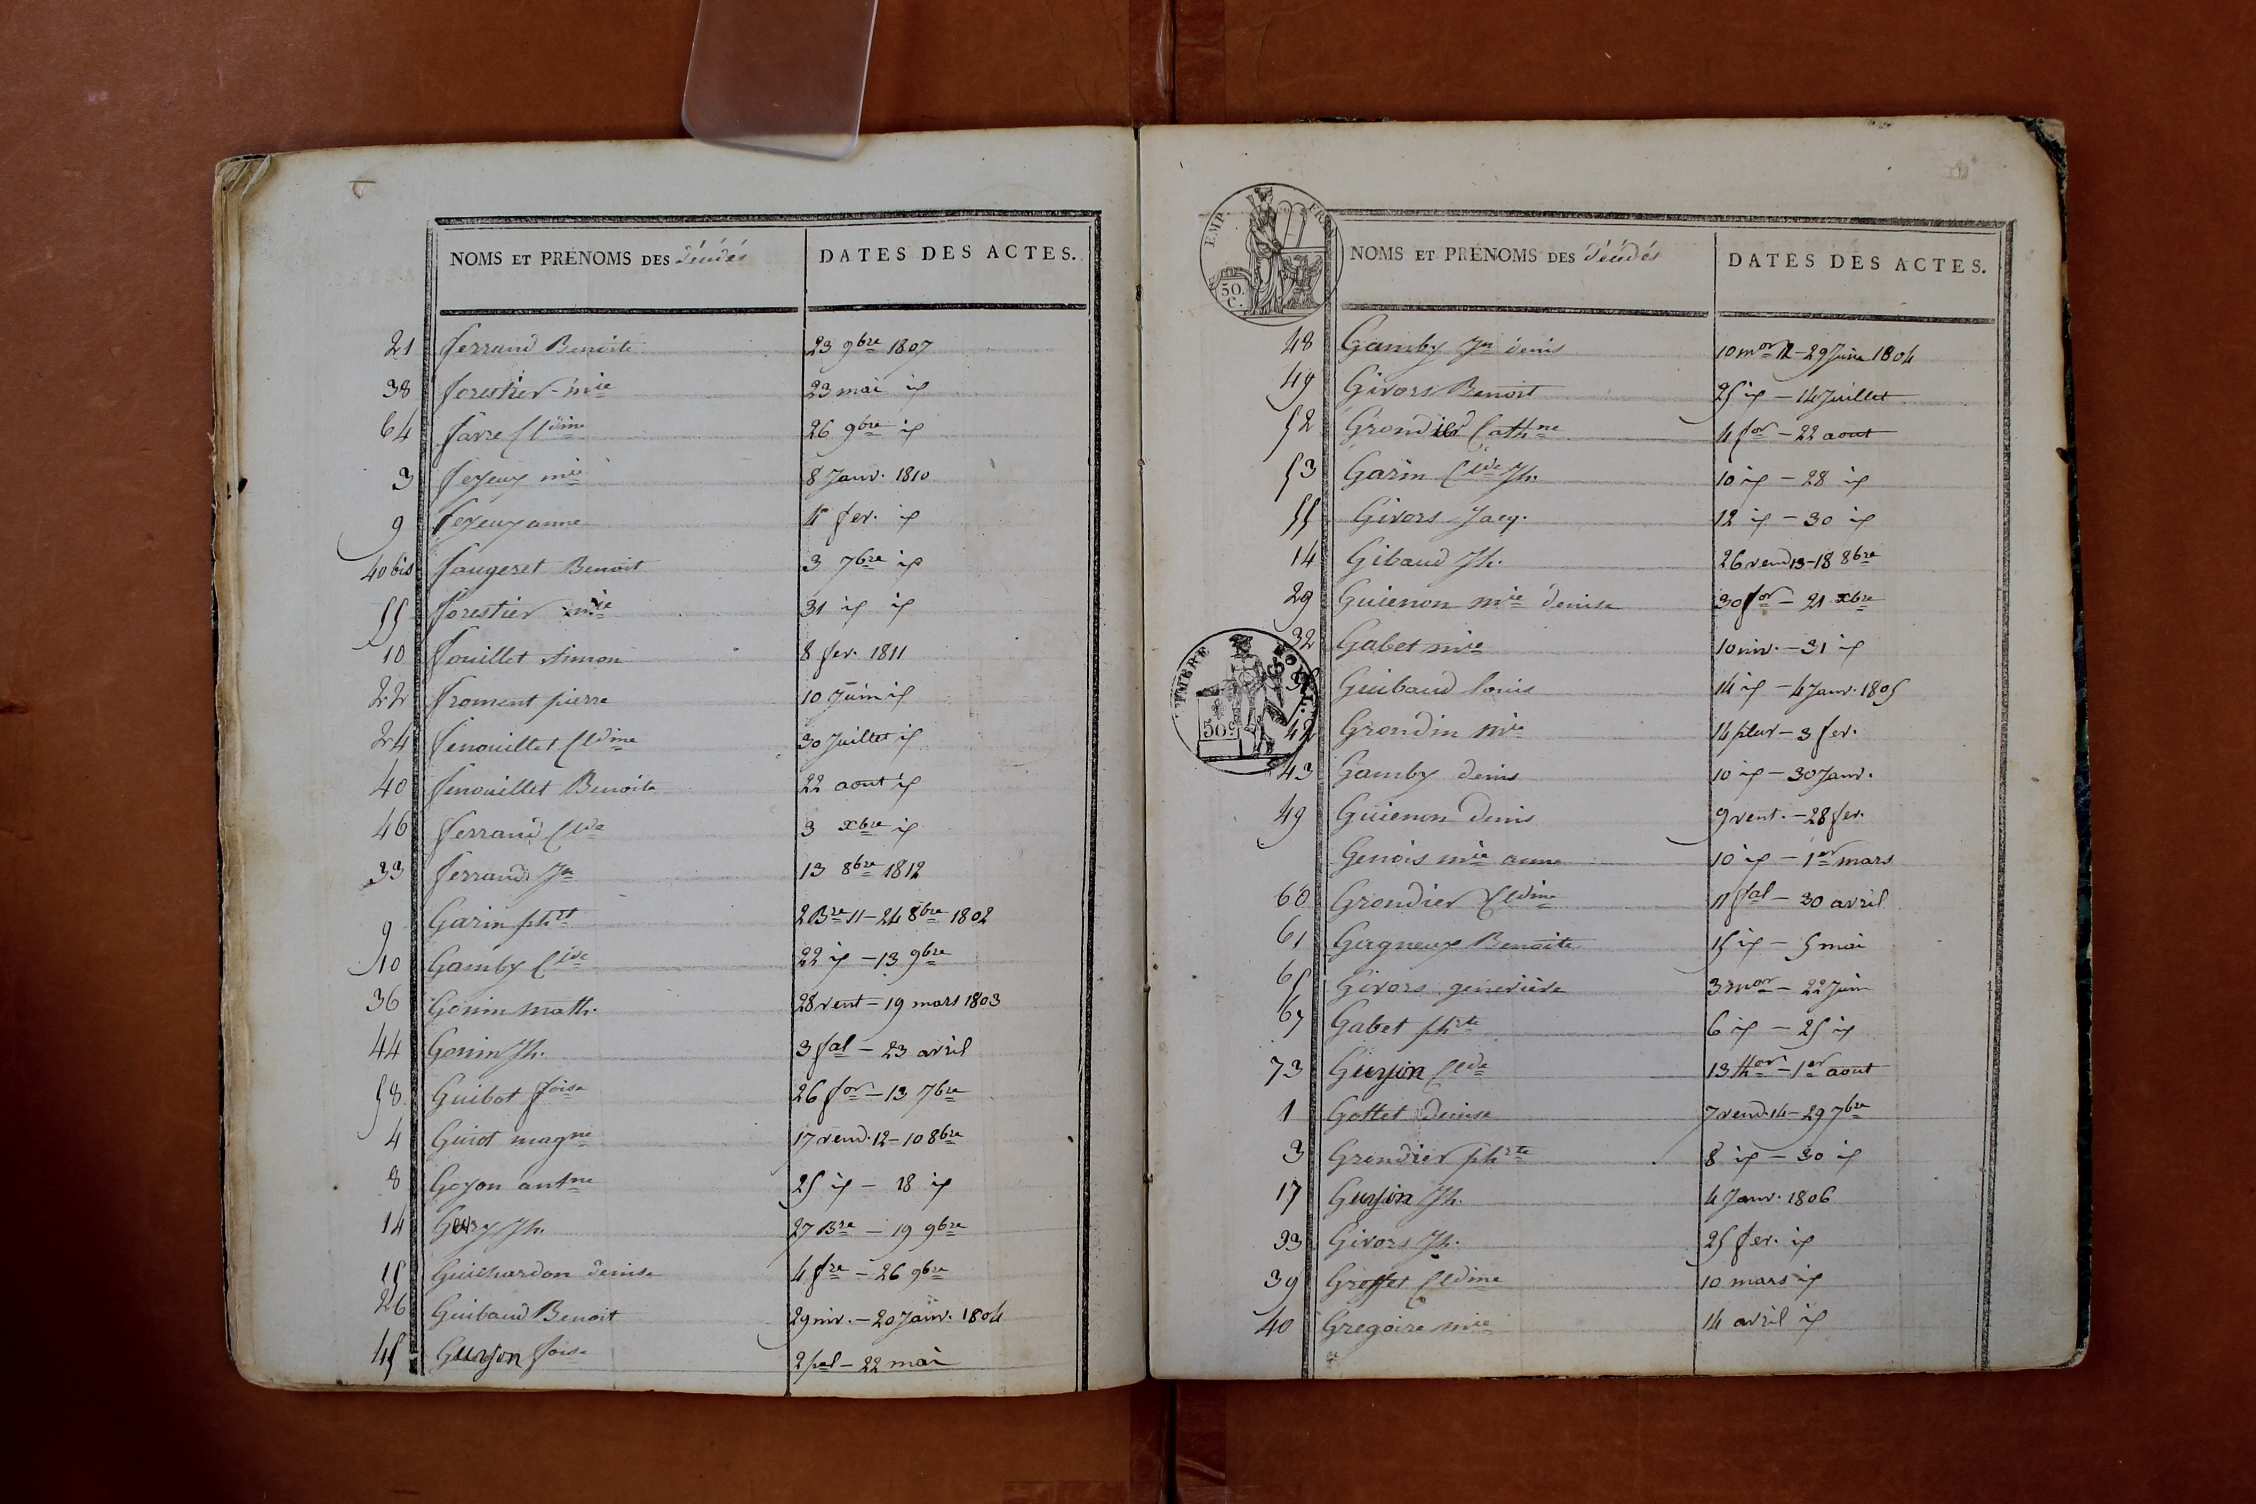 NOMS ET PRÉNOMS DES Décédés DATES DES ACTES.
21 ferrand Benoite 23 9bre 1807
38 forestier mie 23 mai ip
64 favre Cldine 26 9bre ip
3 feyeux mie 8 Janv. 1810
9 feyeux anne 4 fev. ip
40 bis faugeret Benoit 3 7bre ip
55 forestier mie 31 ip ip
10 fouillet Simon 8 fev. 1811
22 froment pierre 10 Juin ip
24 fenouillet Cldine 30 Juillet ip
40 fenouillet Benoite 22 aout ip
46 ferrand Clde 3 xbre ip
33 ferrand Jn 13 8bre 1812
9 Garin phrt 2 Bre 11 - 24 8bre 1802
10 Gamby Clde 22 ip - 13 9bre
36 Gonin Math. 28 vent - 19 mars 1803
44 Gonin Jh. 3 fal - 23 avril
58 Guibot foise 26 for - 13 7bre
4 Guiot magne 17 vend. 12 - 10 8bre
8 Goyon antne 25 ip - 18 ip
14 Jh. 27 Bre - 19 9bre
15 Guichardon denise 4 fre - 26 9bre
26 Guibaud Benoit 29 niv. - 20 Janv. 1804
45 Gurjon foise 2 pal - 22 mai
EMP. FR.
50. C.
NOMS ET PRÉNOMS DES Décédés DATES DES ACTES.
48 Gamby Jn denis 10 mor 12 - 29 Juin 1804
49 Givors Benoit 25 ip - 14 Juillet
52 Grondier Cathne 4 for - 22 aout
53 Garin Clde Jh. 10 ip - 28 ip
55 Givors Jacq. 12 ip - 30 ip
14 Gibaud Jh. 26 vend 13 - 18 8bre
29 Guienon mie denise 30 for - 21 xbre
32 Gabet mie 10 niv. - 31 ip
TIMBRE ROYAL.
50c
Guibaud Louis 14 ip - 4 Janv. 1805
42 Grondin mie 14 pluv - 3 fev.
43 Gamby denis 10 ip - 30 Janv.
49 Guienon Denis 9 vent. - 28 fev.
Genois mie anne 10 ip - 1er mars
60 Grondier Cldine 11 fal - 30 avril
61 Gagneux Benoite 15 ip - 5 mai
65 Givors genevieve 3 mor - 22 Juin
67 Gabet phrte 6 ip - 25 ip
73 Gurjon Clde 13 thor - 1er aout
1 Gottet Denise 7 vend. 14 - 29 7bre
3 Grondier phrte 8 ip - 30 ip
17 Gurjon Jh. 4 Janv. 1806
33 Givors Jh. 25 fev. ip
39 Groffet Cldine 10 mars ip
40 Gregoire mie 14 avril ip